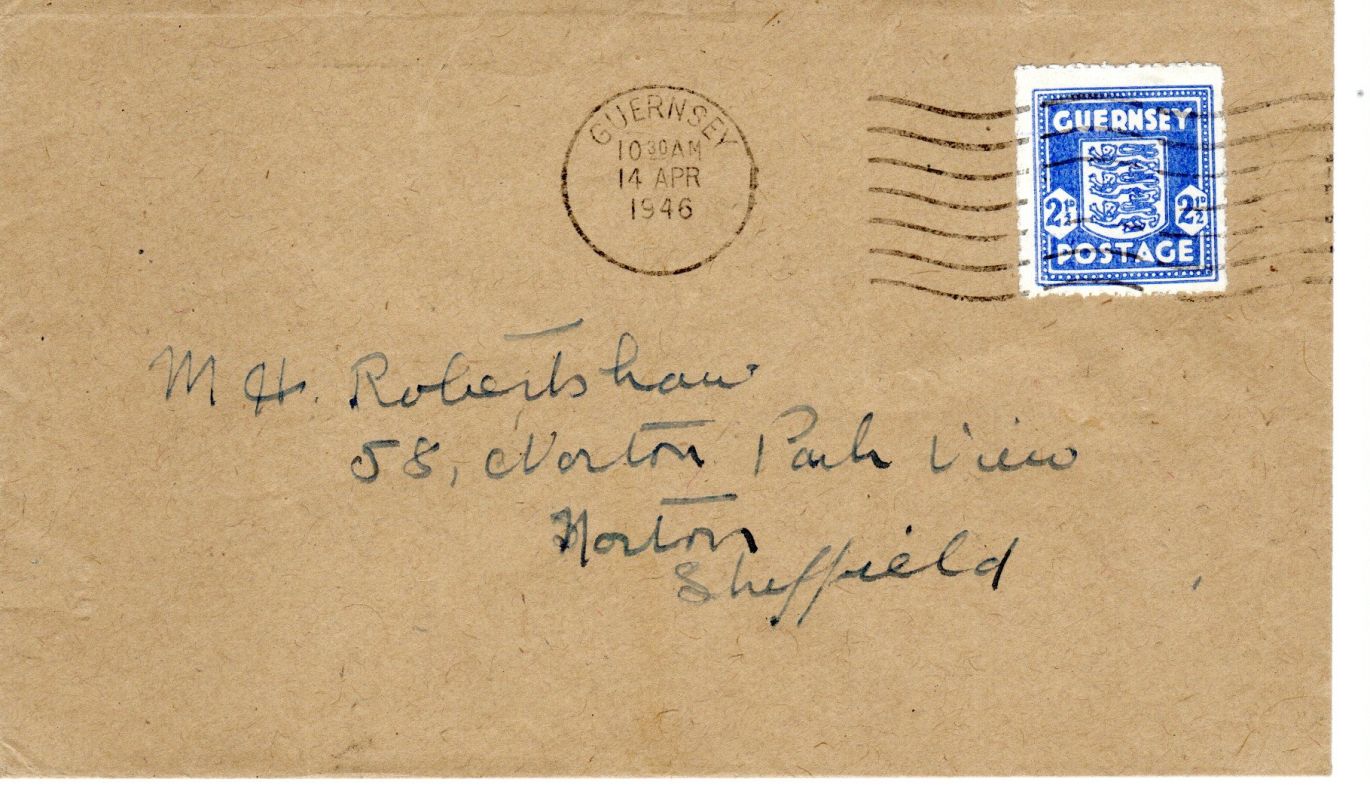 GUERNSEY
10 30 AM
14 APR
1946
GUERNSEY
2½D 2½D
POSTAGE
M H. Robertshaw
58, Norton Park View
Norton
Sheffield